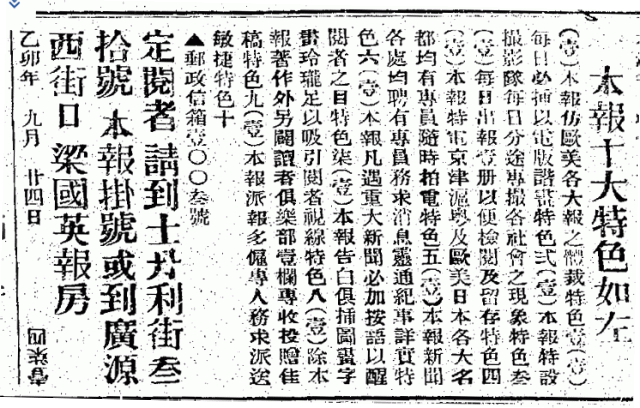 本報十大特色如左
（壹）本報仿歐美各大報之體裁特色壹（壹）
每日必插以電版諧畫特色弍（壹）本報特設
撮影隊每日分途專攝各社會之現象特色叁
（壹）每日出報壹册以便檢閱及留存特色四
（壹）本報特電京津滬奧及歐美日本各大名
都均有專員隨時拍電特色五（壹）本報新聞
各處均聘有專員務求消息靈通紀事詳實特
色六（壹）本報凡遇重大新聞必加按語以醒
閱者之目特色柒（壹）本報告白俱插圖畫字
畫玲瓏足以吸引閱者視線特色八（壹）除本
報著作外另闢讀者俱樂部壹欄專收投贈佳
稿特色九（壹）本報派報多僱專人務求派送
敏捷特色十
▲郵政信箱壹〇〇叁號
定閱者請到士丹利街叁
拾號本報掛號或到廣源
西街口梁國英報房
乙卯年 九月 廿四日
壹柒四